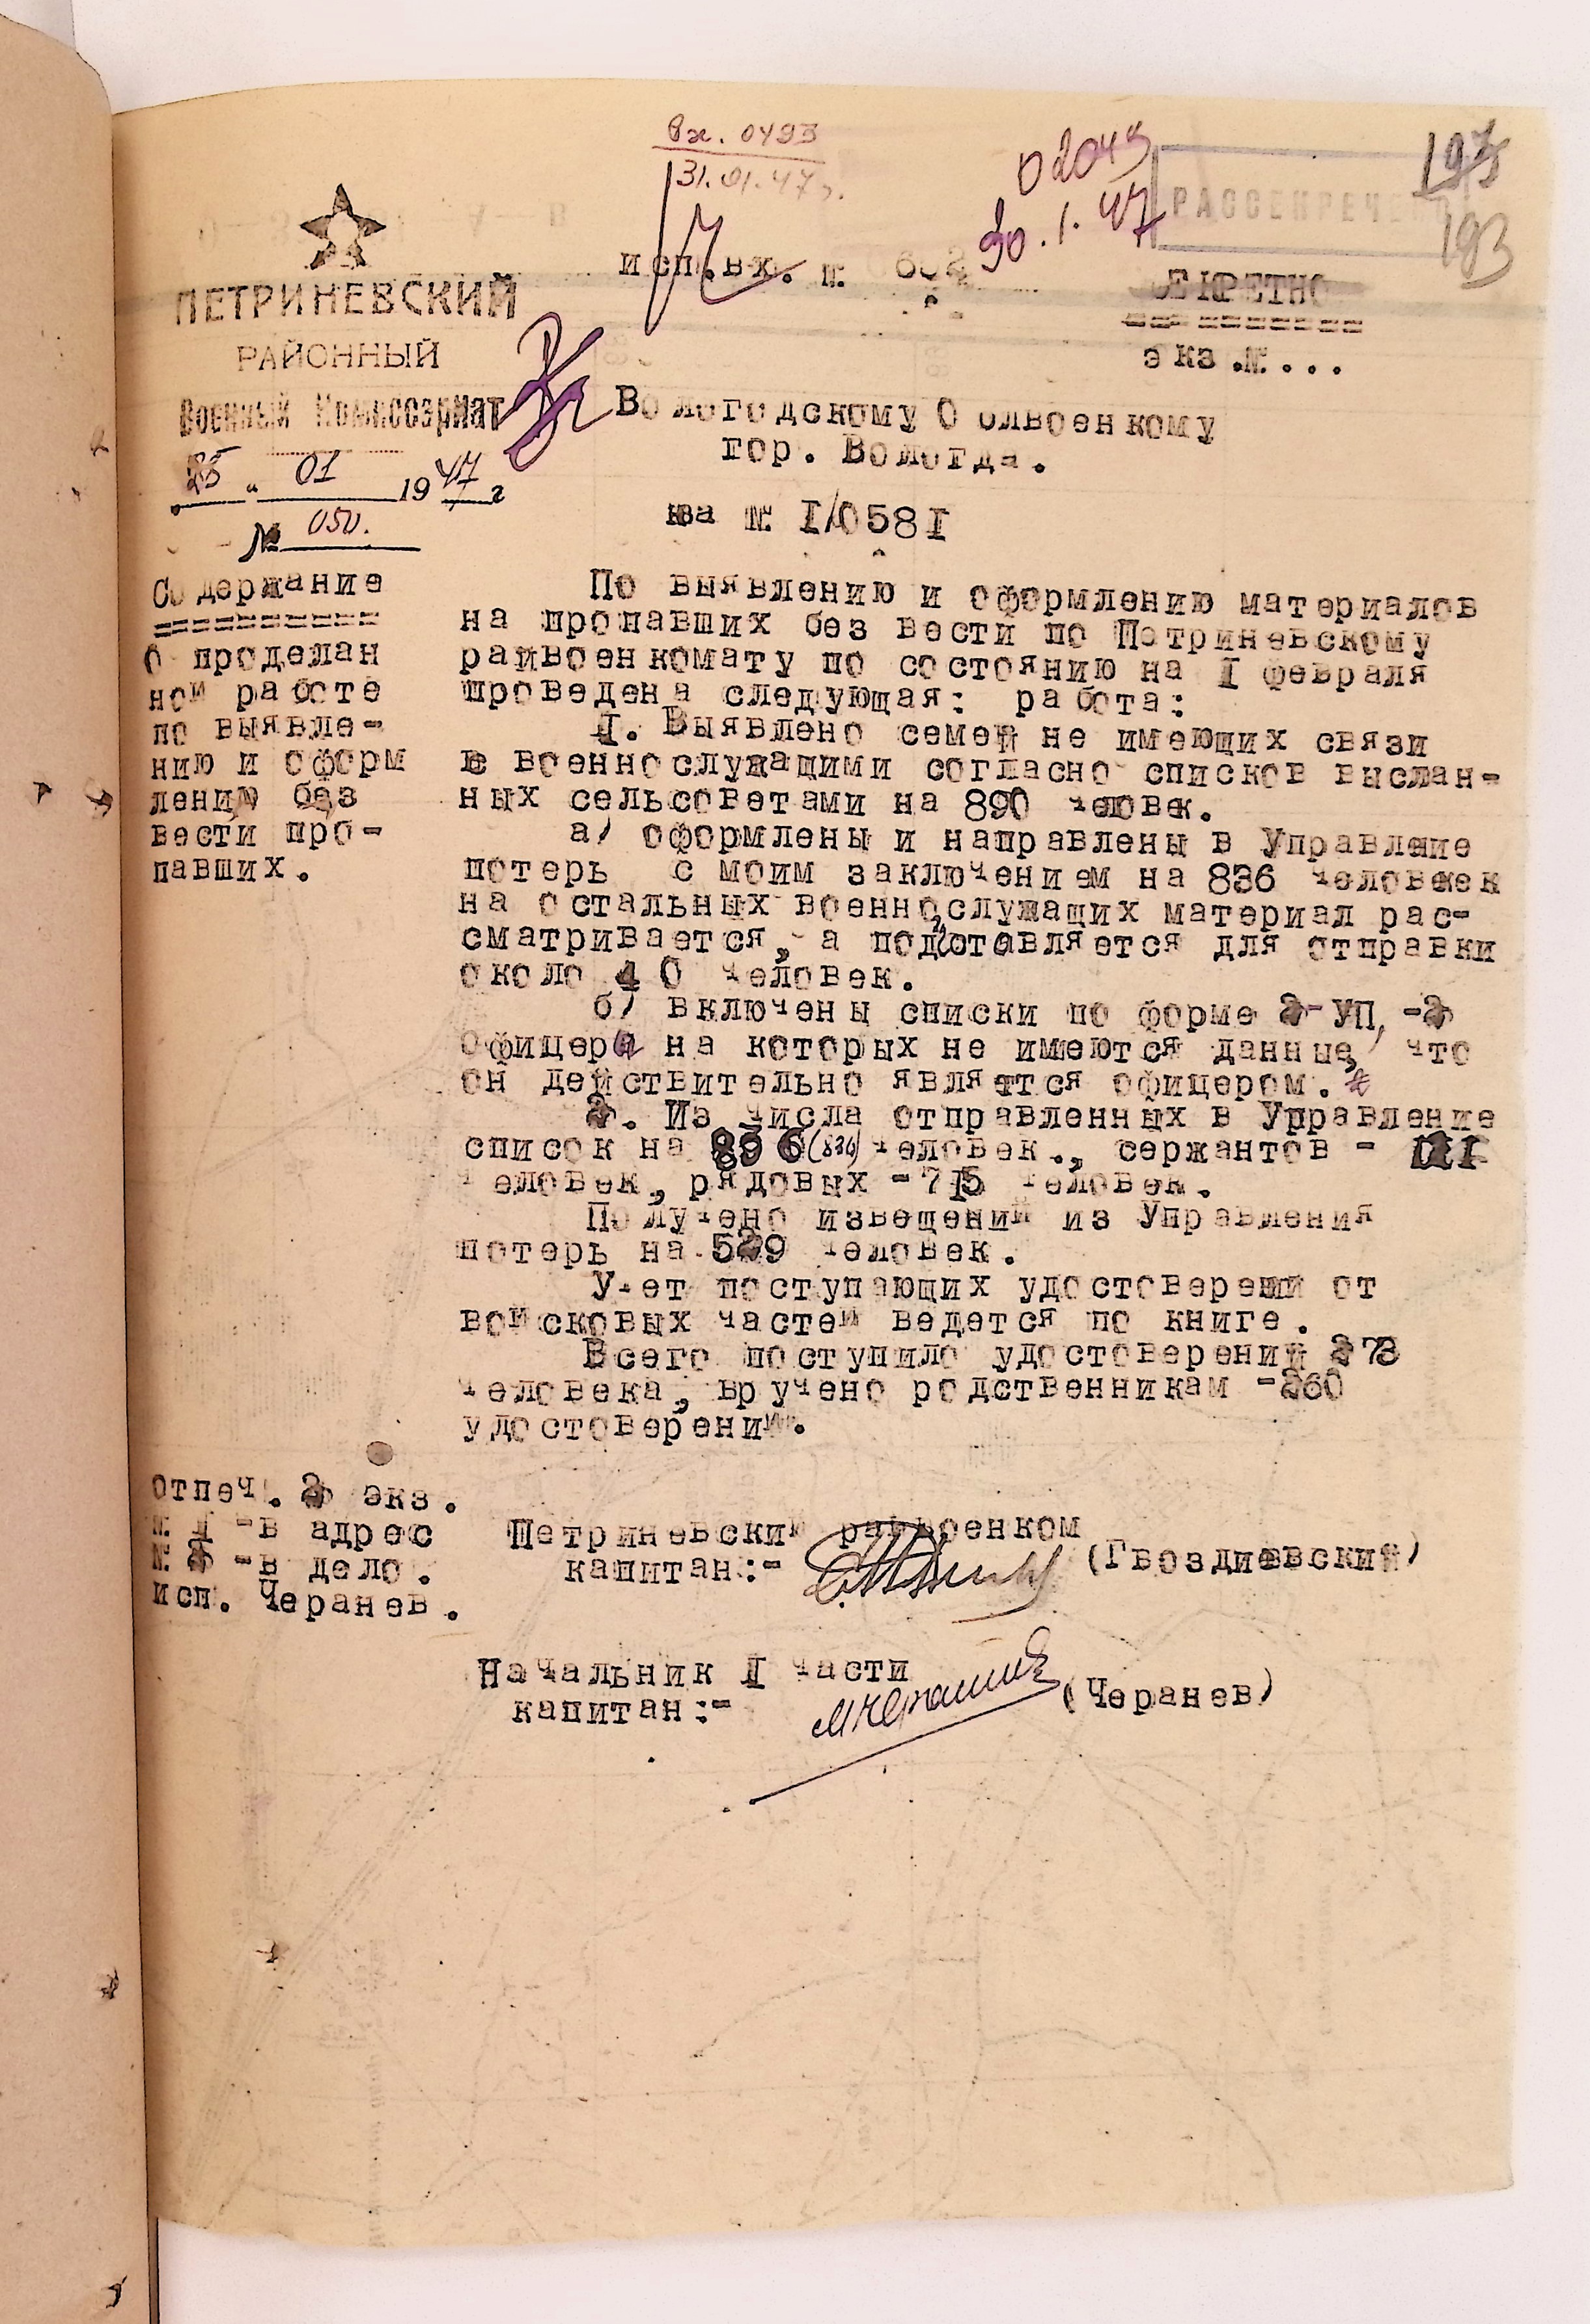 Вх. 0493
31.01.47 г.
02045
30.1.47
РАССЕКРЕЧЕНО
193
193
исп.вх. №
СЕКРЕТНО
==========
экз.№...
ПЕТРИНЕВСКИЙ
РАЙОННЫЙ
Военный Комиссариат
25 " 01 1947 г
№ 050.
Вологодскому Облвоенкому
гор. Вологда.
на № I/0581
Содержание
==========
О проделан
ной работе
по выявле-
нию и оформ
лению без
вести про-
павших.
По выявлению и оформлению материалов
на пропавших без вести по Петриневскому
райвоенкомату по состоянию на I февраля
проведена следующая: работа:
I. Выявлено семей не имеющих связи
с военнослужащими согласно списков выслан-
ных сельсоветами на 890 человек.
а) оформлены и направлены в Управление
потерь с моим заключением на 836 человек
на остальных военнослужащих материал рас-
сматривается, а подготовляется для отправки
около 40 человек.
б) включены списки по форме 2-УП, -2
офицера на которых не имеются данные, что
он действительно является офицером.
2. Из числа отправленных в Управление
список на 836 (836) человек., сержантов -
человек, рядовых -715 человек.
Получено извещений из Управления
потерь на 529 человек.
Учет поступающих удостоверени от
войсковых частей ведется по книге.
Всего поступило удостоверений 273
человека, вручено родственникам -260
удостоверений.
отпеч. 2 экз.
№ I -в адрес
№ 2 -в дело.
исп. Черанев.
Петриневский райвоенком
капитан:- (Гвоздиевский)
Начальник I части
капитан:- (Черанев)